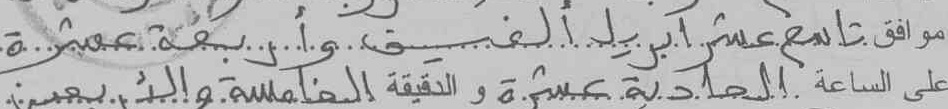 موافق تاسع عشر ابريل ألفين وأربعة عشرة
على الساعة الحادية عشرة و الدقيقة الخامسة والأربعين